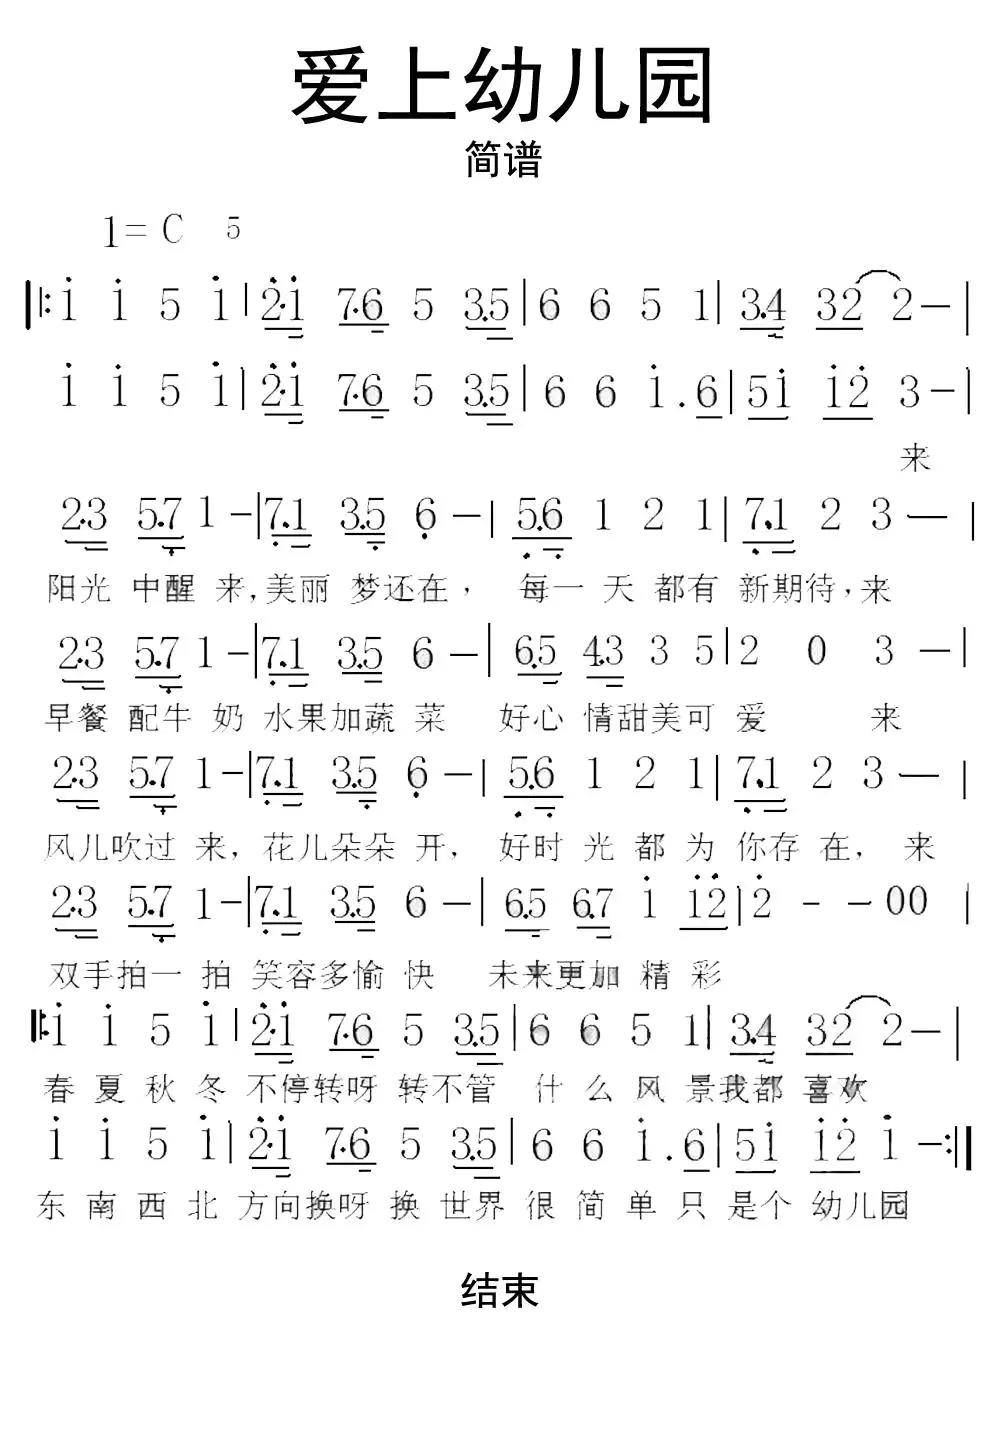 爱上幼儿园
简谱
1=C 5
‖:i i 5 i|2·i 7·6 5 3·5|6 6 5 1|3·4 32 2—|
i i 5 i|2·i 7·6 5 3·5|6 6 i·6|5i i2 3—|
来
2·3 5·7 1—|7·1 3·5 6—|5·6 1 2 1|7·1 2 3—|
阳光 中醒 来,美丽 梦还在, 每一 天 都有 新期待,来
2·3 5·7 1—|7·1 3·5 6—|6·5 4·3 3 5|2 0 3—|
早餐 配牛 奶 水果加蔬 菜 好心 情甜美可 爱 来
2·3 5·7 1—|7·1 3·5 6—|5·6 1 2 1|7·1 2 3—|
风儿吹过 来,花儿朵朵 开, 好时 光 都 为 你存 在, 来
2·3 5·7 1—|7·1 3·5 6—|6·5 6·7 i i2|2 - - 00|
双手拍一 拍 笑容多愉 快 未来更加 精 彩
‖:i i 5 i|2·i 7·6 5 3·5|6 6 5 1|3·4 32 2—|
春 夏 秋 冬 不停转呀 转不管 什 么 风 景我都 喜欢
i i 5 i|2·i 7·6 5 3·5|6 6 i·6|5i i2 i—:‖
东 南 西 北 方向换呀 换 世界 很 简 单 只 是个 幼儿园
结束